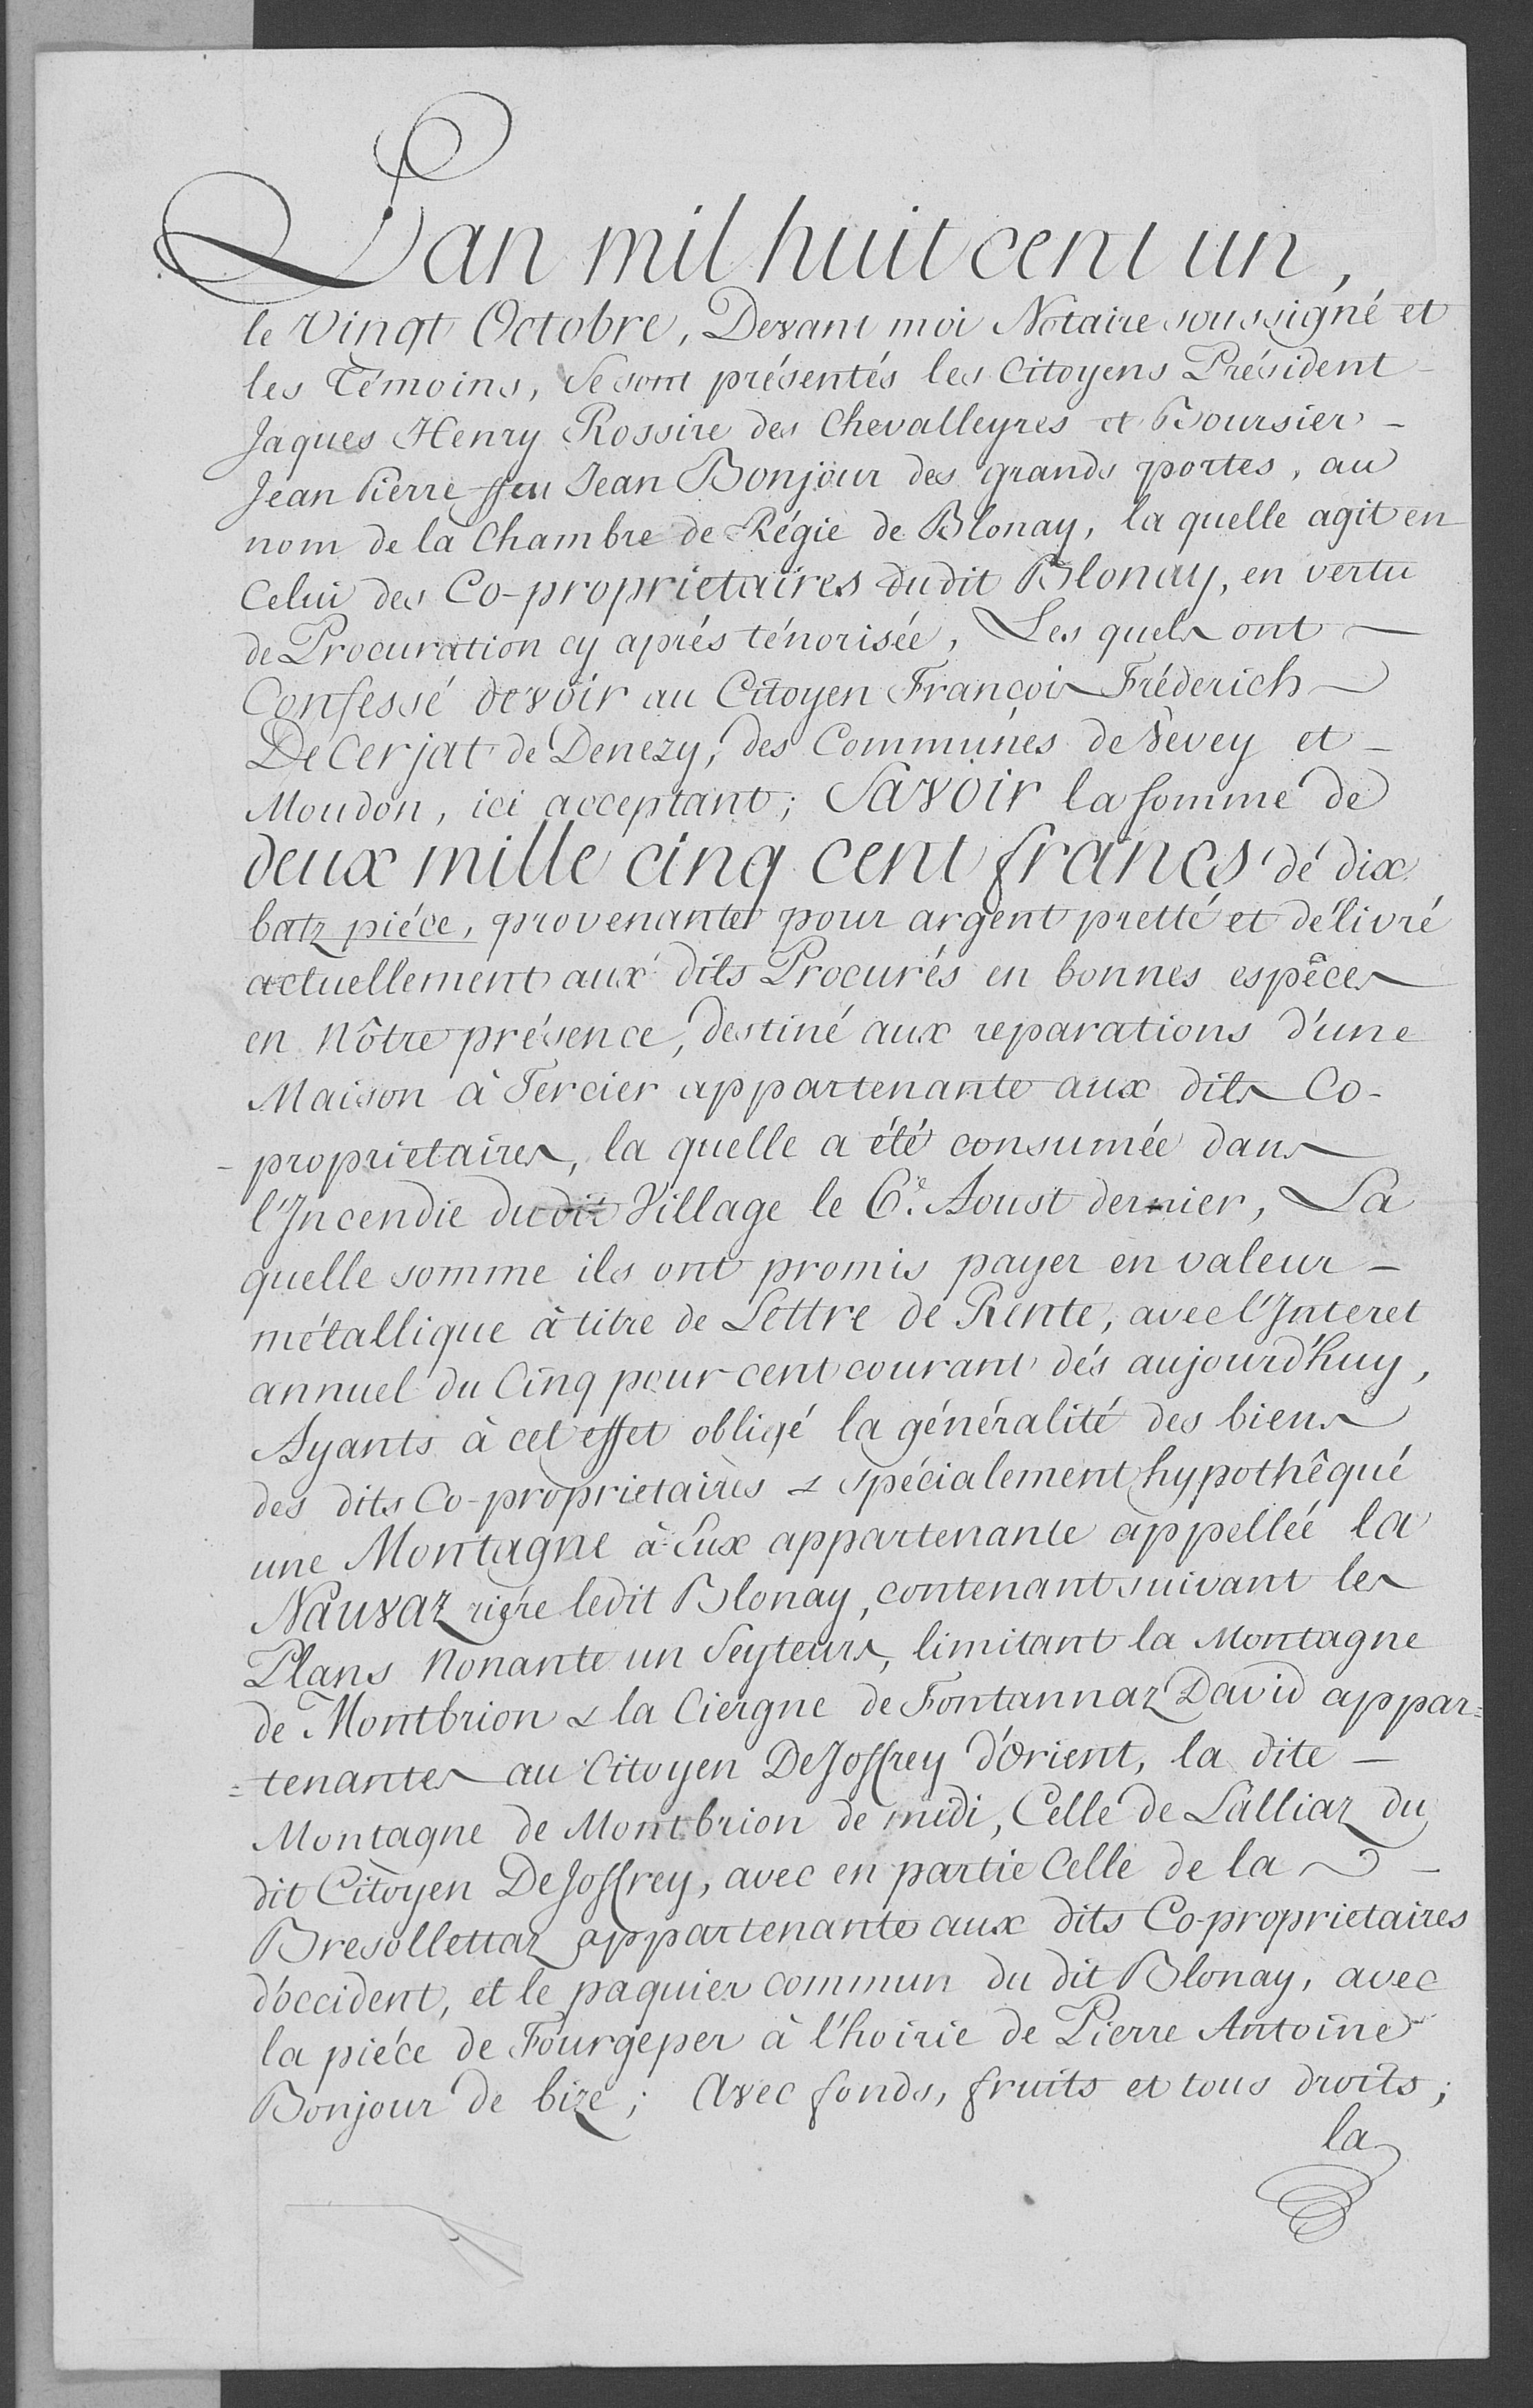 L'an mil huit cent un,
le Vingt Octobre, Devant moi Notaire soussigné et
les Témoins, Se sont présentés les Citoyens Président
Jaques Henry Rossire des Chevalleyres et Boursier -
Jean Pierre ffeu Jean Bonjour des grands portes, au
nom de la Chambre de Régie de Blonay, la quelle agit en
Celui des Co-proprietaires dudit Blonay, en vertu
de Procuration cy aprés ténorisée, Les quels ont
Confessé devoir au Citoyen François Fréderich
De Cerjat de Denezy, des Communes de Vevey et -
Moudon, ici acceptant; Savoir la somme de
deux mille cinq cent francs de dix
batz piéce, provenante pour argent pretté et délivré
actuellement aux dits Procurés en bonnes espêces
en Nôtre présence, destiné aux reparations d'une
Maison à Tercier appartenante aux dits Co-
- proprietaires, la quelle a été consumée dans
l'Incendie dudit Village le 6.e Aoust dernier, La
quelle somme ils ont promis payer en valeur -
métallique à titre de Lettre de Rente, avec l'Interet
annuel du Cinq pour cent courant dés aujourd'huy,
Ayants à cet effet obligé la généralité des biens
des dits Co-proprietaires & spécialement hypothêqué
une Montagne à Eux appartenante appellée la
Nauvaz riére ledit Blonay, contenant suivant les
Plans Nonante un Seyteurs, limitant la Montagne
de Montbrion & la Ciergne de Fontannaz David appar=
=tenantes au Citoyen DeJoffrey d'Orient, la dite -
Montagne de Montbrion de midi, Celle de Lalliaz du
dit Citoyen DeJoffrey, avec en partie Celle de la -
Bresollettaz appartenante aux dits Co-proprietaires
d'occident, et le paquier commun du dit Blonay, avec
la piéce de Fourgeper à l'hoirie de Pierre Antoine
Bonjour de bize; Avec fonds, fruits et tous droits;
la